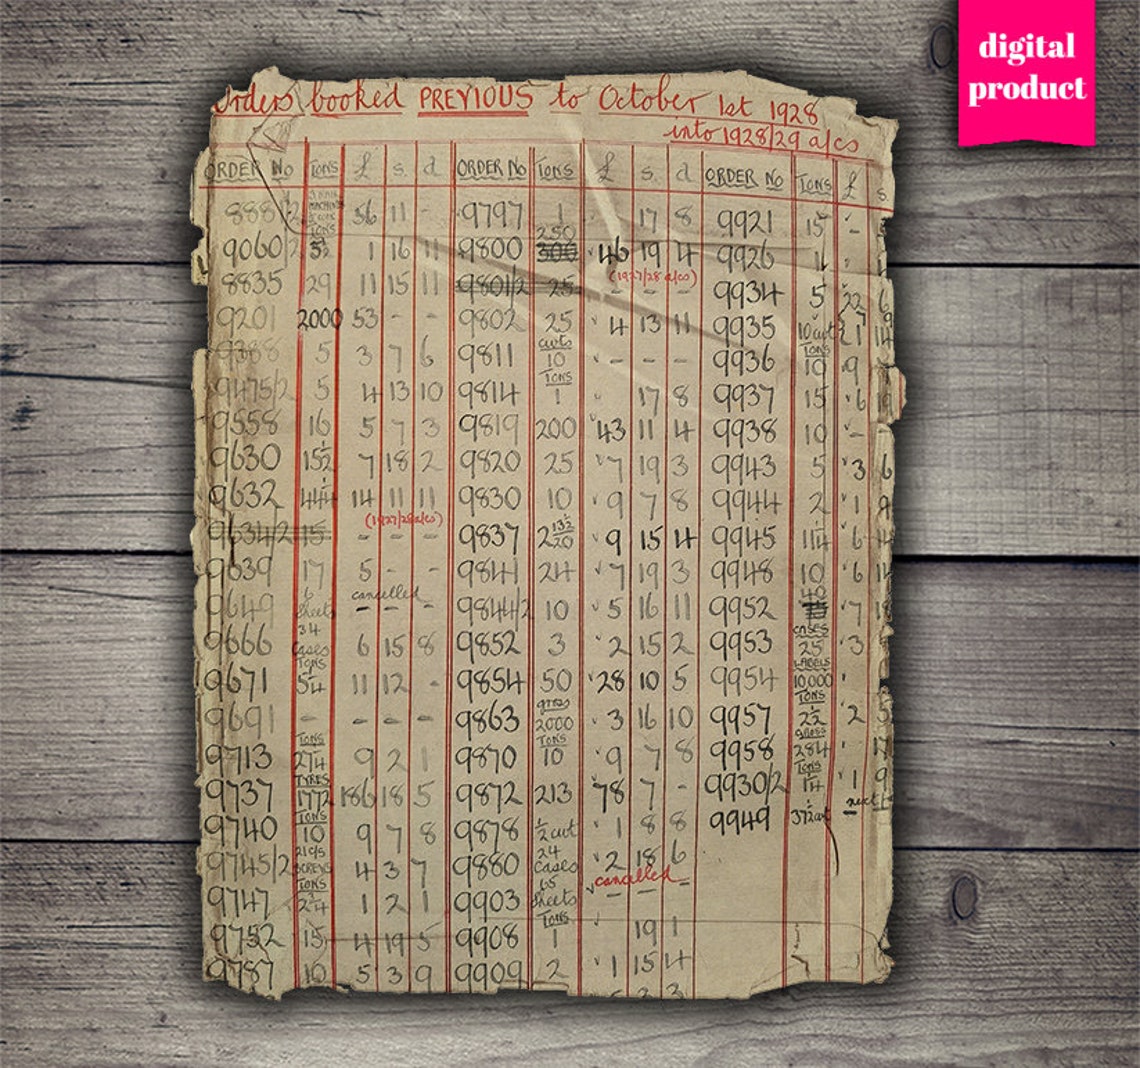 digital
product
Orders booked PREVIOUS to October 1st 1928
into 1928/29 a/cs
ORDER No TONS £ s. d ORDER No TONS £ s. d ORDER No TONS £ s.
888/2 56 11 - 9797 1 17 8 9921 15 -
TONS 250
9060/2 1 16 11 9800 300 46 19 4 9926
(1927/28 a/cs)
8835 29 11 15 11 9801/2 25 - - - 9934 5 22 6
9201 2000 53 - - 9802 25 4 13 11 9935 10 cwt
cwts TONS
9388 5 3 7 6 9811 10 - - - 9936 10 9
TONS
9475/2 5 4 13 10 9814 1 17 8 9937 15 6 19
9558 16 5 7 3 9819 200 43 11 4 9938 10 -
9630 15½ 7 18 2 9820 25 7 19 3 9943 5 3 6
9632 44¼ 14 11 11 9830 10 9 7 8 9944 2 1 9
(1927/28 a/cs)
9634/2 15 - - - 9837 2 13½/20 9 15 4 9945 11¼ 6 14
9639 17 5 - - 9841 24 7 19 3 9948 10 6
6 cancelled 40
9649 sheets - - - 9844/2 10 5 16 11 9952 7 18
34 CASES
9666 cases 6 15 8 9852 3 2 15 2 9953 25 3
TONS LABELS
9671 5¼ 11 12 - 9854 50 28 10 5 9954 10000
gross TONS
9691 - - - - 9863 2000 3 16 10 9957 2½ 2
TONS TONS gross
9713 27¼ 9 2 1 9870 10 9 7 8 9958 284 17
TYRES TONS
9737 1772 186 18 5 9872 213 78 7 - 9930/2 1¼ 1 9
TONS next
9740 10 9 7 8 9878 ½ cwt 1 8 8 9949 37½ cwt -
21 c/s 24
9745/2 SCREWS 4 3 7 9880 cases 2 18 6
TONS 65 cancelled
9747 2¾ 1 2 1 9903 sheets - - -
TONS
9752 15 4 19 5 9908 1 19 1
9787 10 5 3 9 9909 2 1 15 4